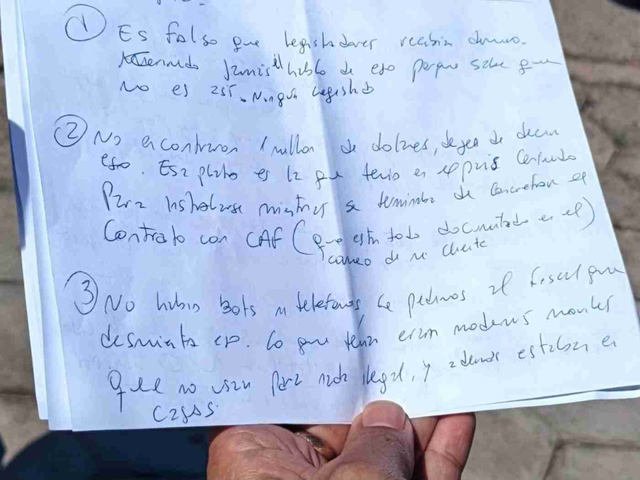 ① Es falso que legisladores recibían dinero.
jamás habló de eso porque sabe que
no es así. Ningún legislad
② No encontraron 1 millon de dolares, dejen de decir
eso. Esa plata es la que tenía en el país
Para instalarse mientras se terminaba de concretar el
Contrato con CAF (que esta todo documentado en el)
correo de mi cliente
③ No había bots ni teléfonos, le pedimos al fiscal que
desmienta eso. Lo que tenía eran modems moviles
que no usan para nada ilegal, y además estaban en
cajas